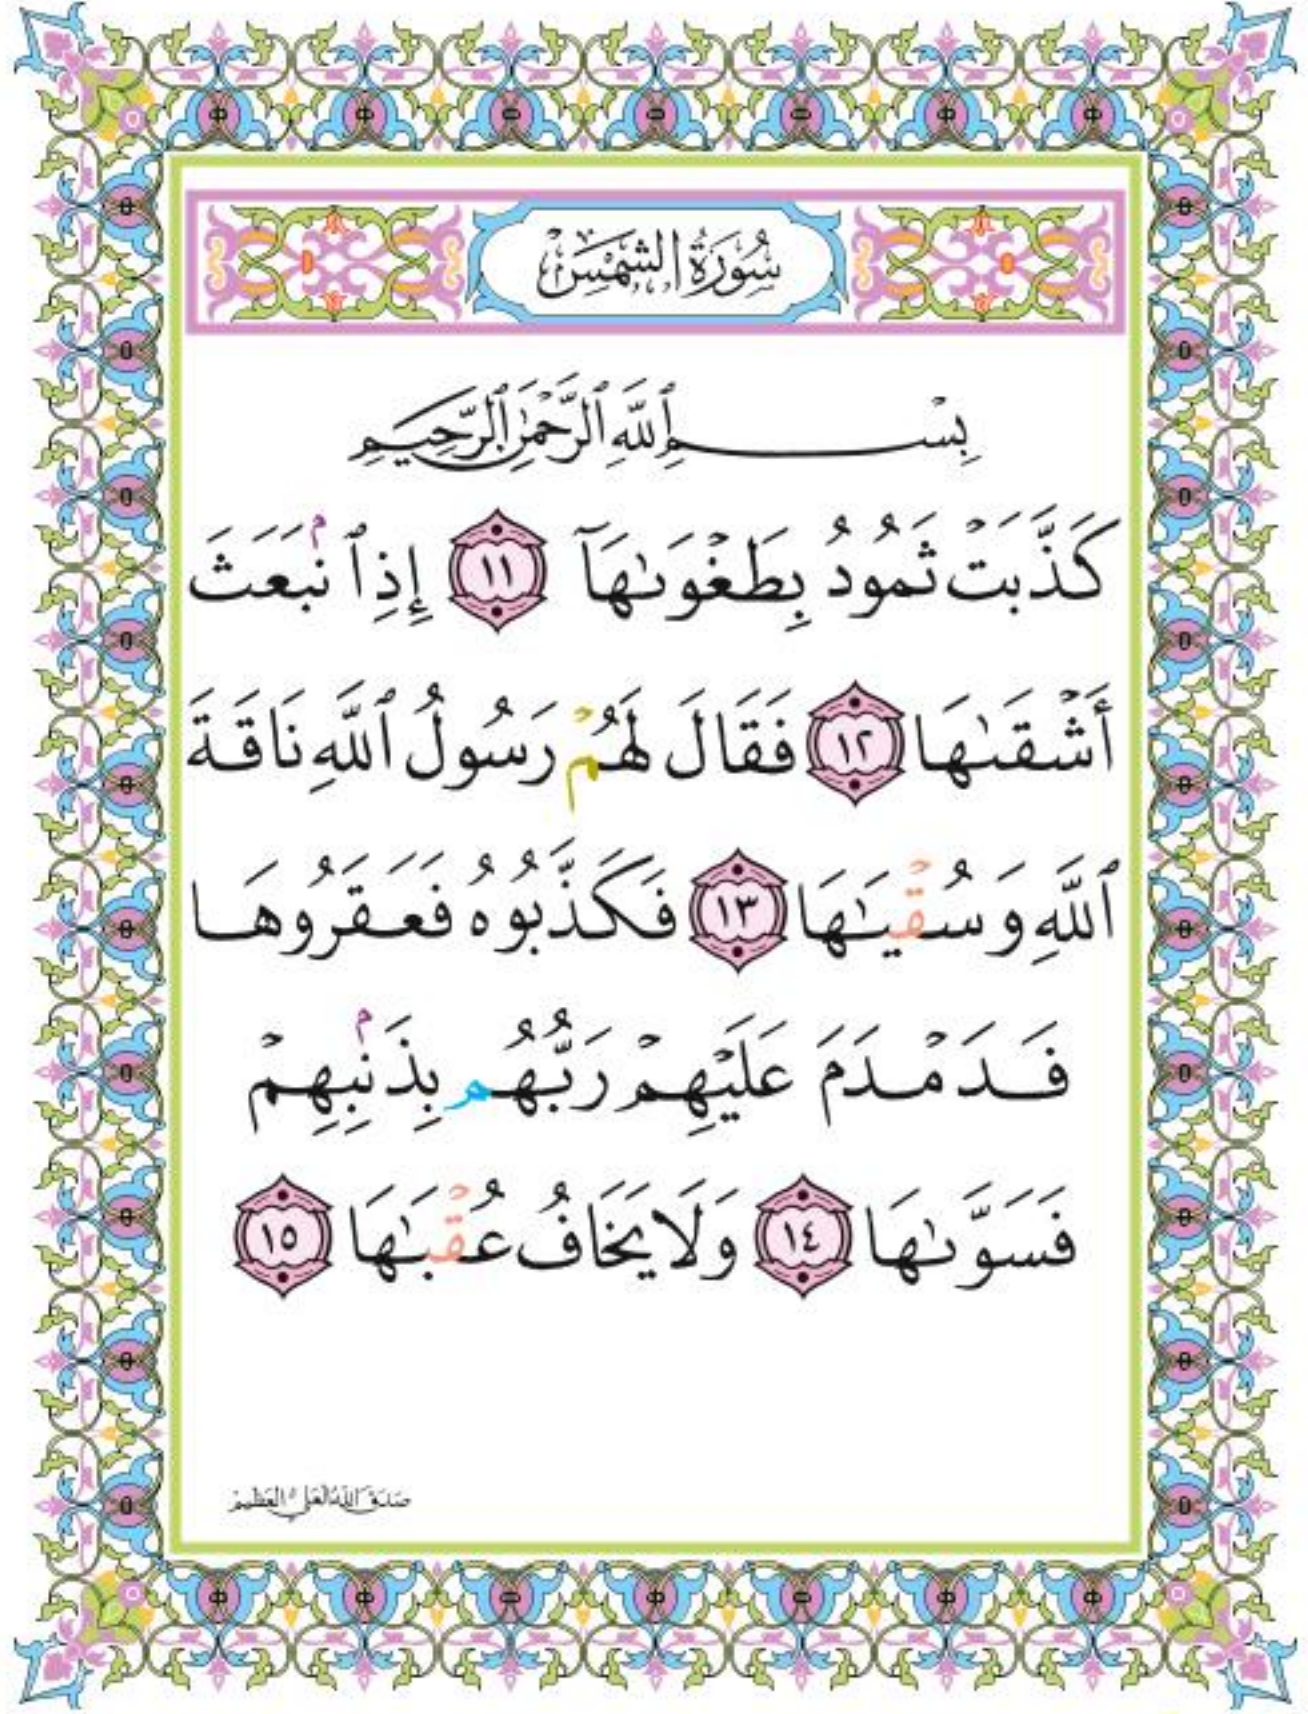 سُورَةُ الشَّمْسِ
بِسْمِ ٱللَّهِ ٱلرَّحْمَٰنِ ٱلرَّحِيمِ
كَذَّبَتْ ثَمُودُ بِطَغْوَىٰهَآ ١١ إِذِ ٱنۢبَعَثَ
أَشْقَىٰهَا ١٢ فَقَالَ لَهُمْ رَسُولُ ٱللَّهِ نَاقَةَ
ٱللَّهِ وَسُقْيَـٰهَا ١٣ فَكَذَّبُوهُ فَعَقَرُوهَا
فَدَمْدَمَ عَلَيْهِمْ رَبُّهُم بِذَنۢبِهِمْ
فَسَوَّىٰهَا ١٤ وَلَا يَخَافُ عُقْبَـٰهَا ١٥
صَدَقَ اللَّهُ العَلِيُّ العَظِيمُ